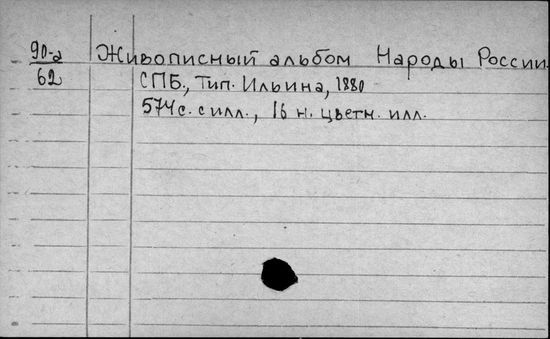 90-а Живописный альбом Народы России.
62 СПБ., Тип. Ильина, 1880
574 с. с илл., 16 н. цветн. илл.